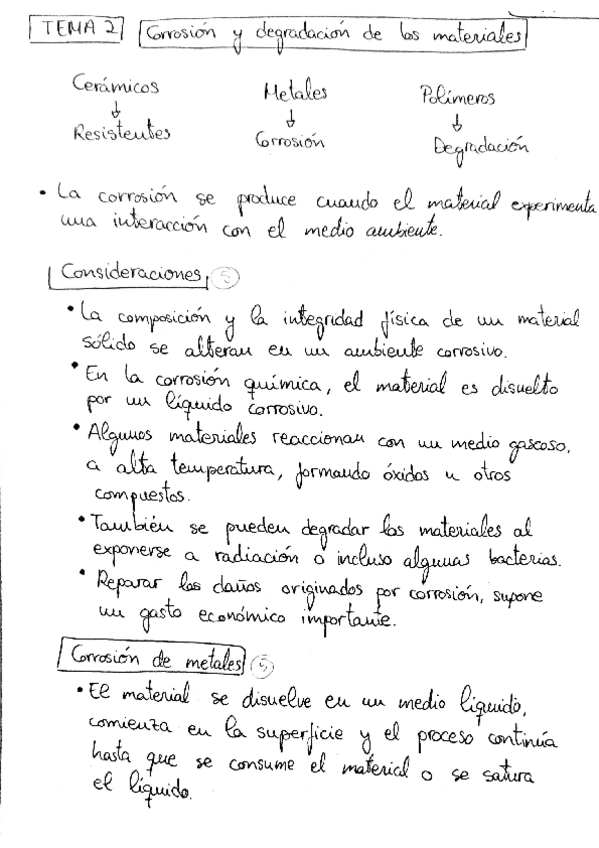 TEMA 2 Corrosión y degradación de los materiales
Cerámicos Metales Polímeros
↓ ↓ ↓
Resistentes Corrosión Degradación
• La corrosión se produce cuando el material experimenta
una interacción con el medio ambiente.
Consideraciones 5
• La composición y la integridad física de un material
sólido se alteran en un ambiente corrosivo.
• En la corrosión química, el material es disuelto
por un líquido corrosivo.
• Algunos materiales reaccionan con un medio gascoso,
a alta temperatura, formando óxidos u otros
compuestos.
• También se pueden degradar los materiales al
exponerse a radiación o incluso algunas bacterias.
• Reparar los daños originados por corrosión, supone
un gasto económico importante.
Corrosión de metales 5
• El material se disuelve en un medio líquido,
comienza en la superficie y el proceso continúa
hasta que se consume el material o se satura
el líquido.